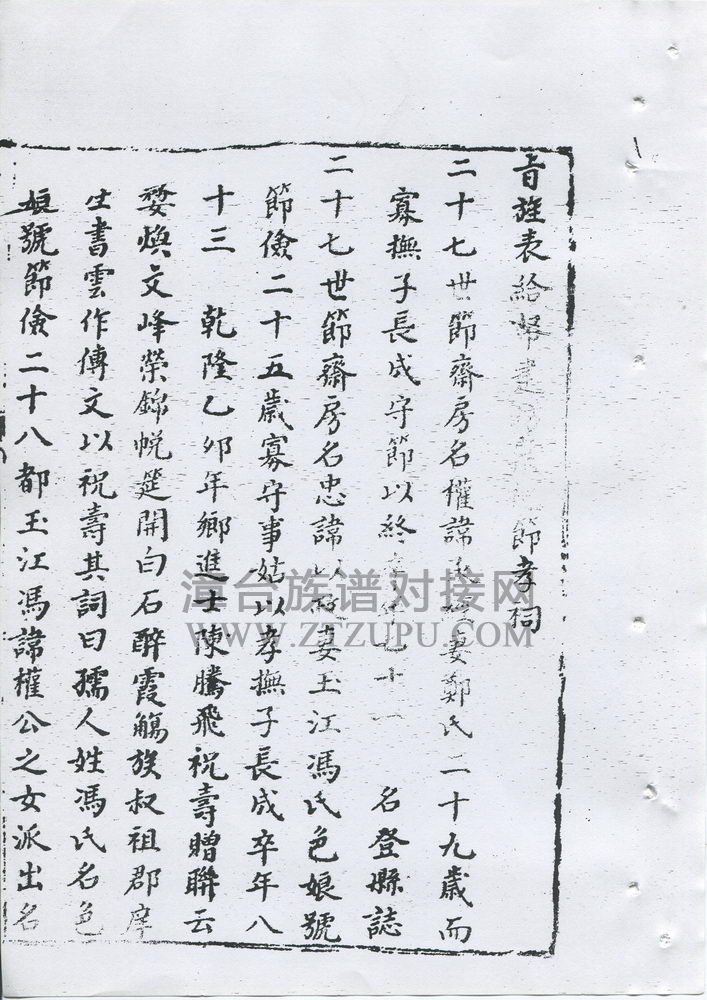 旨旌表給帑建節孝祠
二十七世節齋房名權諱妻鄭氏二十九歲而
寡撫子長成守節以終七十一 名登縣誌
二十七世節齋房名忠諱以妻玉江馮氏色娘號
節儉二十五歲寡守事姑以孝撫子長成卒年八
十三 乾隆乙卯年鄉進士陳騰飛祝壽贈聯云
婺煥文峰榮錦帨筵開白石醉霞觴族叔祖郡庠
生書雲作傳文以祝壽其詞曰孺人姓馮氏名色
娘號節儉二十八都玉江馮諱權公之女派出名
漳台族谱对接网
WWW.ZTZUPU.COM